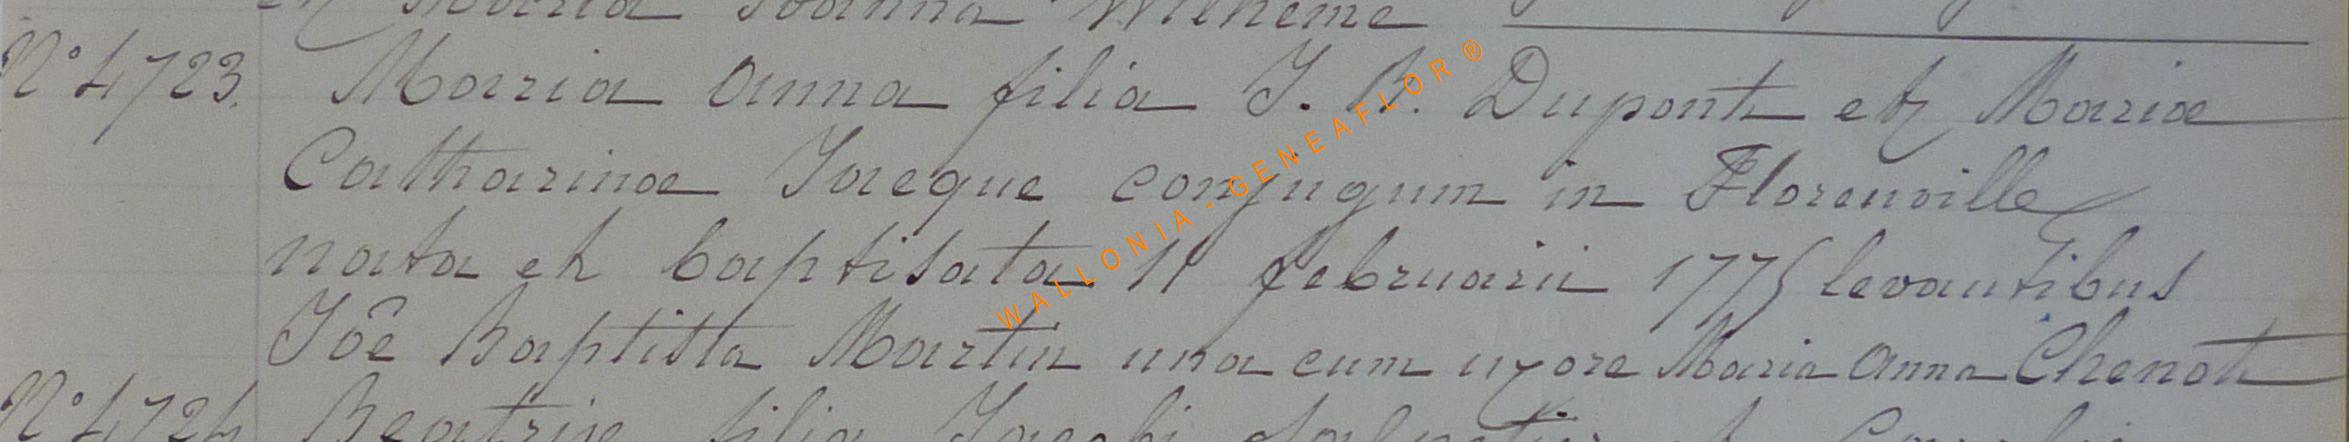 et Maria Joanna Wilheme
N° 4723. Maria Anna filia J. B. Dupont et Mariæ
Catharinæ Jacque conjugum in Florenville
nata et baptisata 11 februarii 1775 levantibus
Jôe Baptista Martin una cum uxore Maria Anna Chenot
N° 4724 Beatrix filia Jacobi et
WALLONIA - GENEAFLOR ®